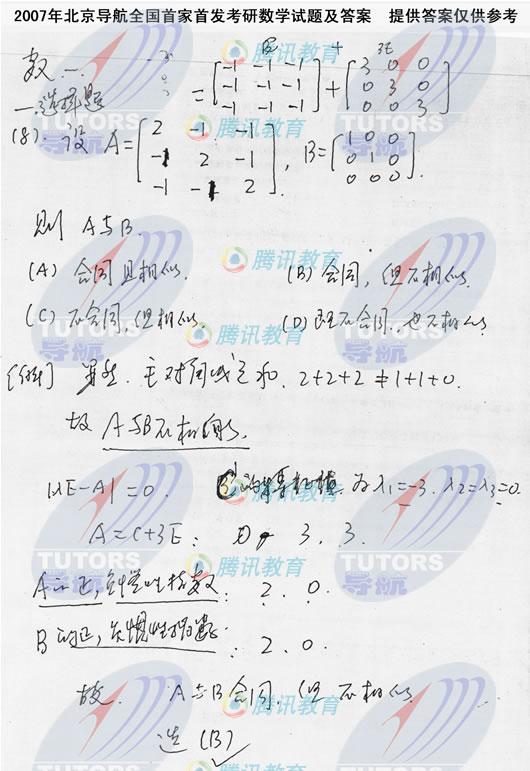 2007年北京导航全国首家首发考研数学试题及答案 提供答案仅供参考
数一. B + 3E
一.选择题 = [-1 -1 -1; -1 -1 -1; -1 -1 -1] + [3 0 0; 0 3 0; 0 0 3]
(8). 设 A = [2 -1 -1; -1 2 -1; -1 -1 2], B = [1 0 0; 0 1 0; 0 0 0].
则 A与B.
(A) 合同且相似. (B) 合同, 但不相似.
(C) 不合同, 但相似. (D) 既不合同, 也不相似
[解] 显然. 主对角线之和. 2+2+2 ≠ 1+1+0.
故 A与B不相似.
|λE-A|=0. 为 λ1=-3. λ2=λ3=0
A=C+3E: 3. 3.
A的正,负惯性指数: 2. 0.
B的正,负惯性指数: 2. 0.
故. A与B合同. 但不相似
选 (B)
腾讯教育
TUTORS
导航